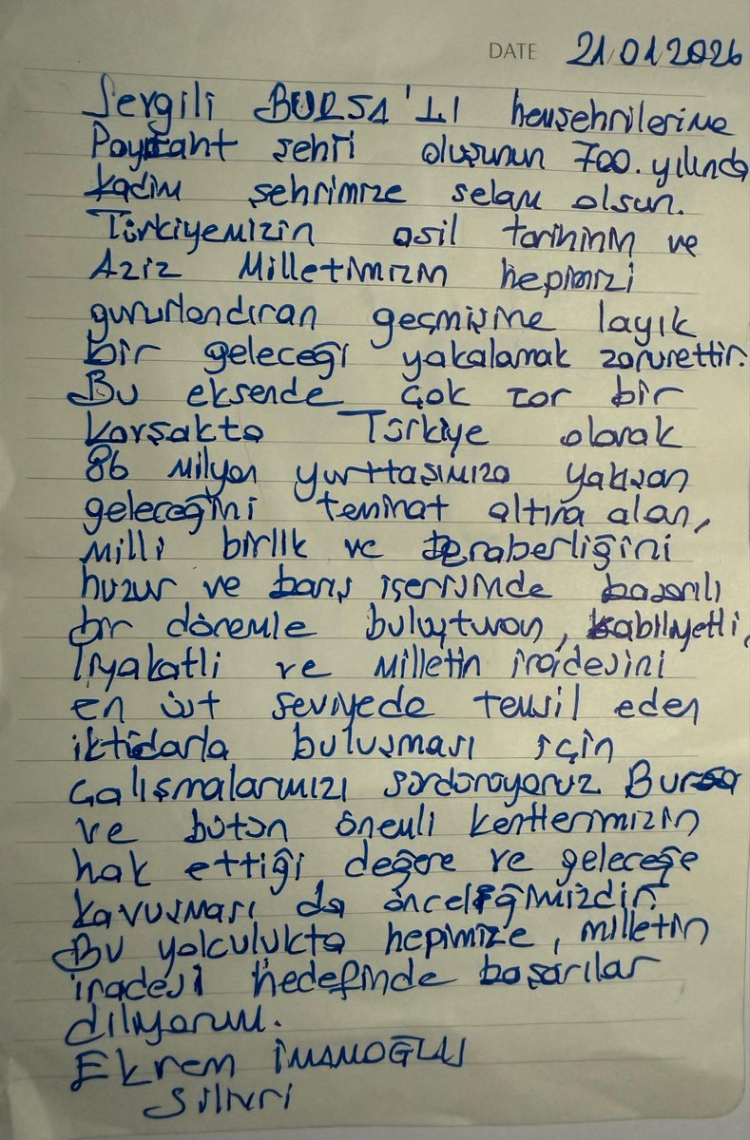 DATE 21.01.2026
Sevgili BURSA'LI hemşehrilerime
Payitaht şehri oluşunun 700. yılında
kadim şehrimize selam olsun.
Türkiyemizin asil tarihinin ve
Aziz Milletimizin hepimizi
gururlandıran geçmişine layık
bir geleceği yakalamak zorunettir.
Bu eksende çok zor bir
kavşakta Türkiye olarak
86 milyon yurttaşımıza yakışan
geleceğini teminat altına alan,
milli birlik ve beraberliğini
huzur ve barış içerisinde başarılı
bir dönemle buluşturan, kabiliyetli,
liyakatli ve milletin iradesini
en üst seviyede temsil eden
iktidarla buluşması için
çalışmalarımızı sürdürüyoruz. Bursa
ve bütün önemli kentlerimizin
hak ettiği değere ve geleceğe
kavuşması da önceliğimizdir.
Bu yolculukta hepimize, milletin
iradesi hedefinde başarılar
diliyorum.
Ekrem İMAMOĞLU
Silivri